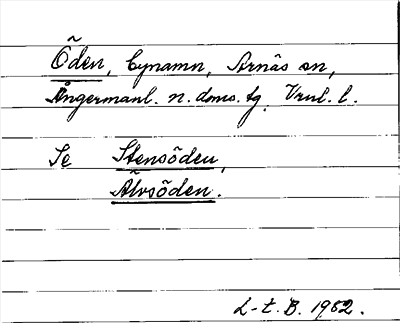 Öden, bynamn, Arnäs sn,
Ångermanl. n. doms. tg. Vnul. l.
Se Stensöden,
Älvsöden.
L-t. B. 1952.